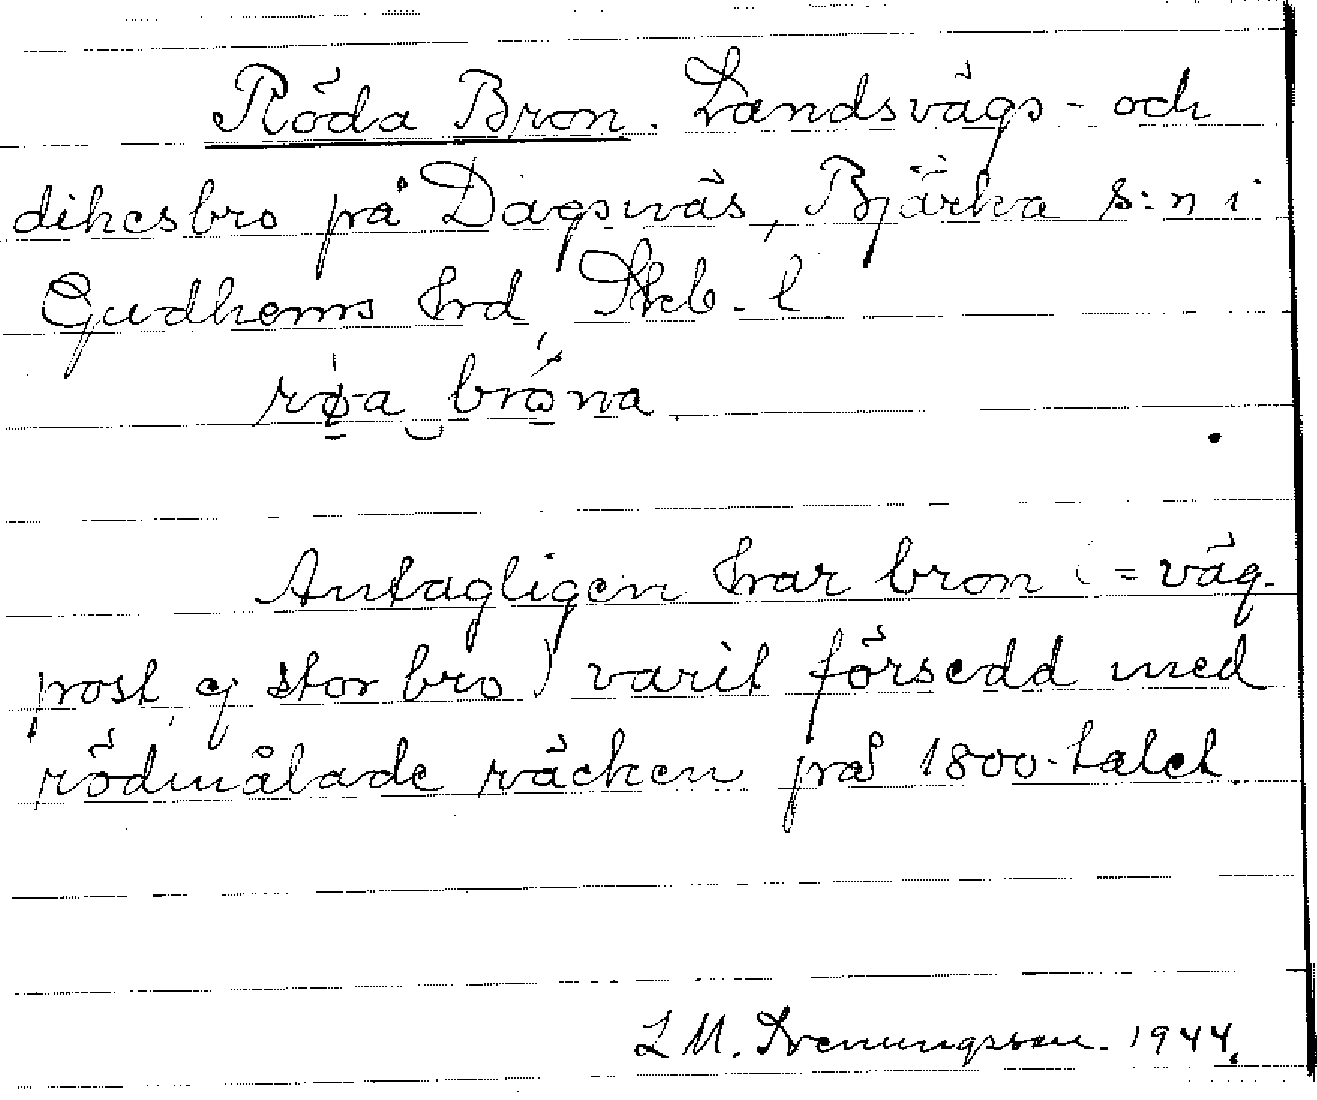 Röda Bron. Landsvägs- och
dikesbro på Dagsnäs, Bjärka s:n i
Gudhems hrd, Skb. l
røa brona.
Antagligen har bron (= väg-
post, ej stor bro) varit försedd med
rödmålade räcken på 1800-talet.
L M. Svenungsson. 1944.